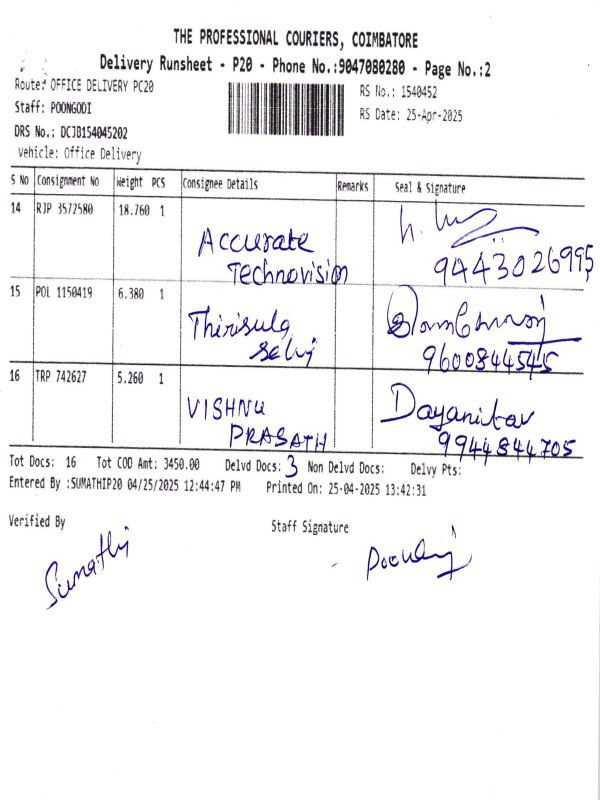 THE PROFESSIONAL COURIERS, COIMBATORE
Delivery Runsheet - P20 - Phone No.:9047080280 - Page No.:2
Route: OFFICE DELIVERY PC20
RS No.: 1540452
Staff: POONGODI
RS Date: 25-Apr-2025
DRS No.: DCJB154045202
Vehicle: Office Delivery
S No Consignment No Weight PCS Consignee Details Remarks Seal & Signature
14 RJP 3572580 18.760 1
Accurate
Technovision
9443026995
15 POL 1150419 6.380 1
Thirisula
selvi
9600844545
16 TRP 742627 5.260 1
VISHNU
PRASATH
Dayanitav
9944844705
Tot Docs: 16 Tot COD Amt: 3450.00 Delvd Docs: 3 Non Delvd Docs: Delvy Pts:
Entered By :SUMATHIP20 04/25/2025 12:44:47 PM Printed On: 25-04-2025 13:42:31
Verified By Staff Signature
Sumathi